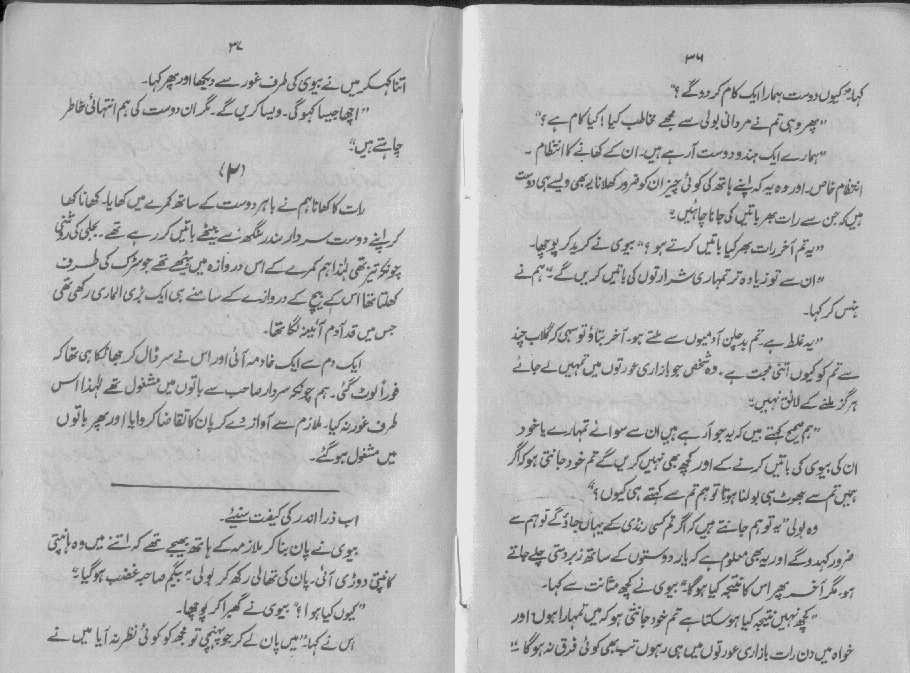 ۳۶
کہا۔ "کیوں دوست ہمارا ایک کام کر دو گے؟"
"پھر وہی تم نے مردانی بولی سے مجھے مخاطب کیا! کیا کام ہے؟"
"ہمارے ایک ہندو دوست آ رہے ہیں۔ ان کے کھانے کا انتظام ۔
انتظام خاص۔ اور وہ یہ کہ اپنے ہاتھ کی کوئی چیز ان کو ضرور کھلانا یہ بھی ویسے ہی دوست
ہیں کہ جن سے رات بھر باتیں کی جانا چاہئیں۔"
"یہ تم آخر رات بھر کیا باتیں کرتے ہو؟" بیوی نے کرید کر پوچھا۔
"ان سے تو زیادہ تر تمہاری شرارتوں کی باتیں کریں گے۔" ہم نے
ہنس کر کہا۔
"یہ غلط ہے۔ تم بدچلن آدمیوں سے ملتے ہو۔ آخر بتاؤ تو سہی کہ گلاب چند
سے تم کو کیوں اتنی محبت ہے۔ وہ شخص جو بازاری عورتوں میں تمہیں لے جائے
ہرگز ملنے کے لائق نہیں۔"
"ہم صحیح کہتے ہیں کہ یہ جو آ رہے ہیں ان سے سوائے تمہارے یا خود
ان کی بیوی کی باتیں کرنے کے اور کچھ بھی نہیں کریں گے تم خود جانتی ہو کہ اگر
ہمیں تم سے جھوٹ ہی بولنا ہوتا تو ہم تم سے کہتے ہی کیوں؟"
وہ بولی "یہ تو ہم جانتے ہیں کہ اگر تم کسی رنڈی کے یہاں جاؤ گے تو ہم سے
ضرور کہہ دو گے اور یہ بھی معلوم ہے کہ یار دوستوں کے ساتھ زبردستی چلے جاتے
ہو۔ مگر آخر پھر اس کا نتیجہ کیا ہو گا۔" بیوی نے کچھ متانت سے کہا۔
"کچھ نہیں نتیجہ کیا ہو سکتا ہے تم خود جانتی ہو کہ میں تمہارا ہوں؛ اور
خواہ میں دن رات بازاری عورتوں میں ہی رہوں تب بھی کوئی فرق نہ ہو گا۔"
۳۷
اتنا کہہ کر میں نے بیوی کی طرف غور سے دیکھا اور پھر کہا۔
"اچھا جیسا کہو گی۔ ویسا کریں گے۔ مگر ان دوست کی ہم انتہائی خاطر
چاہتے ہیں۔"
(۲)
رات کا کھانا ہم نے باہر دوست کے ساتھ کمرے میں کھایا۔ کھانا کھا
کر اپنے دوست سردار سندر سنگھ سے بیٹھے باتیں کر رہے تھے۔ بجلی کی روشنی
چونکہ تیز تھی لہٰذا ہم کمرے کے اس دروازہ میں بیٹھے تھے جو سڑک کی طرف
کھلتا تھا اس کے بیچ کے دروازے کے سامنے ہی ایک بڑی الماری رکھی تھی
جس میں قد آدم آئینہ لگا تھا۔
ایک دم سے ایک خادمہ آئی اور اس نے سر ڈال کر جھانکا ہی تھا کہ
فوراً لوٹ گئی۔ ہم چونکہ سردار صاحب سے باتوں میں مشغول تھے لہٰذا اس
طرف غور نہ کیا۔ ملازم سے آواز دے کر پان کا تقاضا کروایا اور پھر باتوں
میں مشغول ہو گئے۔
اب ذرا اندر کی کیفیت سنیئے۔
بیوی نے پان بنا کر ملازمہ کے ہاتھ بھیجے تھے کہ اتنے میں وہ ہانپتی
کانپتی دوڑی آئی۔ پان کی تھالی رکھ کر بولی۔ "بیگم صاحبہ غضب ہو گیا۔"
"کیوں کیا ہوا؟" بیوی نے گھبرا کر پوچھا۔
اس نے کہا۔ "میں پان لے کر جو پہنچی تو مجھ کو کوئی نظر نہ آیا میں نے